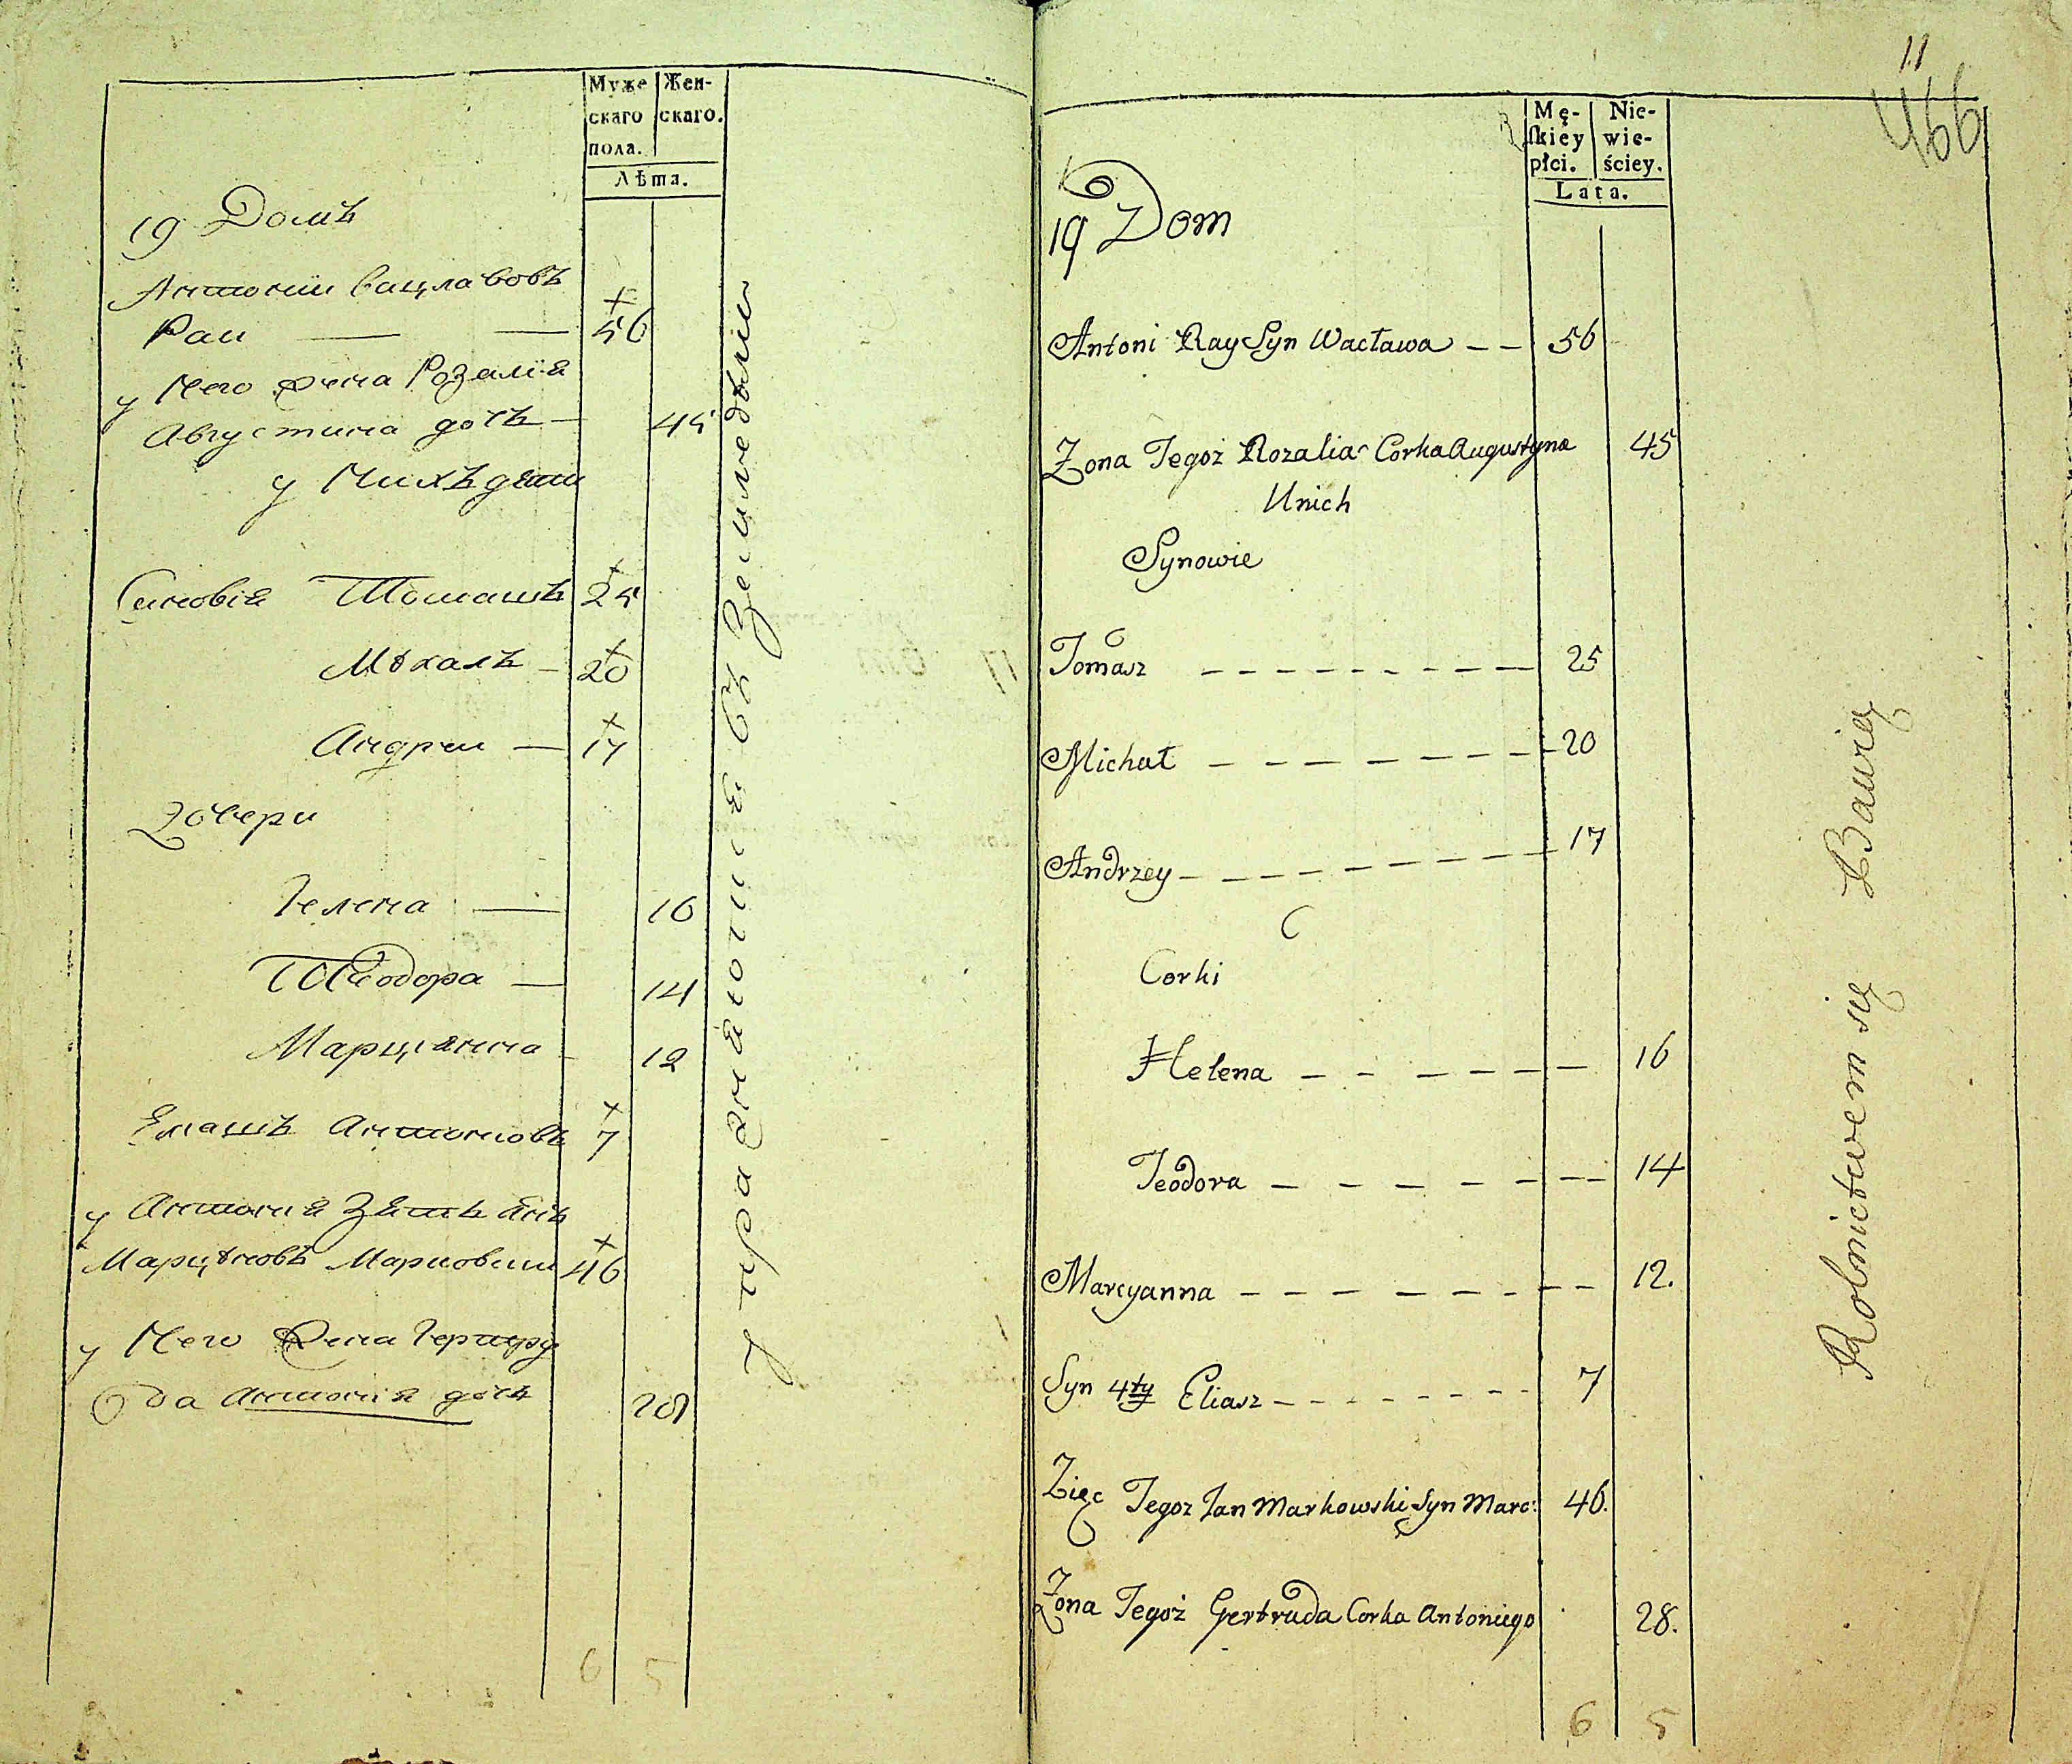 Муже
скаго
пола.
Жен-
скаго.
Лѣта.
19 Домъ
Антоний вацлавовъ
Раи — — 56
у Него жена Розалія
Августина дочь — 45
у Нихъ дѣти
Синовія Томашъ 25
Михалъ — 20
Андреи — 17
Дочери
Гелена — 16
Теодора — 14
Марцианна 12
Елиашъ Антоновъ 7
у Антонія Зять Янъ
Марциновъ Марковски 46
у Него Жена Гертру
да Антонія дочь 28
6 5
упражняютця въ Земледелии
11
466
Mę-
skiey
płci.
Nie-
wie-
ściey.
Lata.
19 Dom
Antoni Ray Syn Wacława — — 56
Zona Tegoż Rozalia Corka Augustyna 45
Unich
Synowie
Tomasz — — — — — — — — 25
Michał — — — — — — — 20
Andrzey — — — — — — — — 17
Corki
Helena — — — — — — — 16
Teodora — — — — — — — 14
Marcyanna — — — — — — — — 12.
Syn 4ty Eliasz — — — — — — — 7
Zięc Tegoz Jan Markowski Syn Marc: 46.
Zona Tegoż Gertruda Corka Antoniego 28.
6 5
Rolnictwem się Bawią